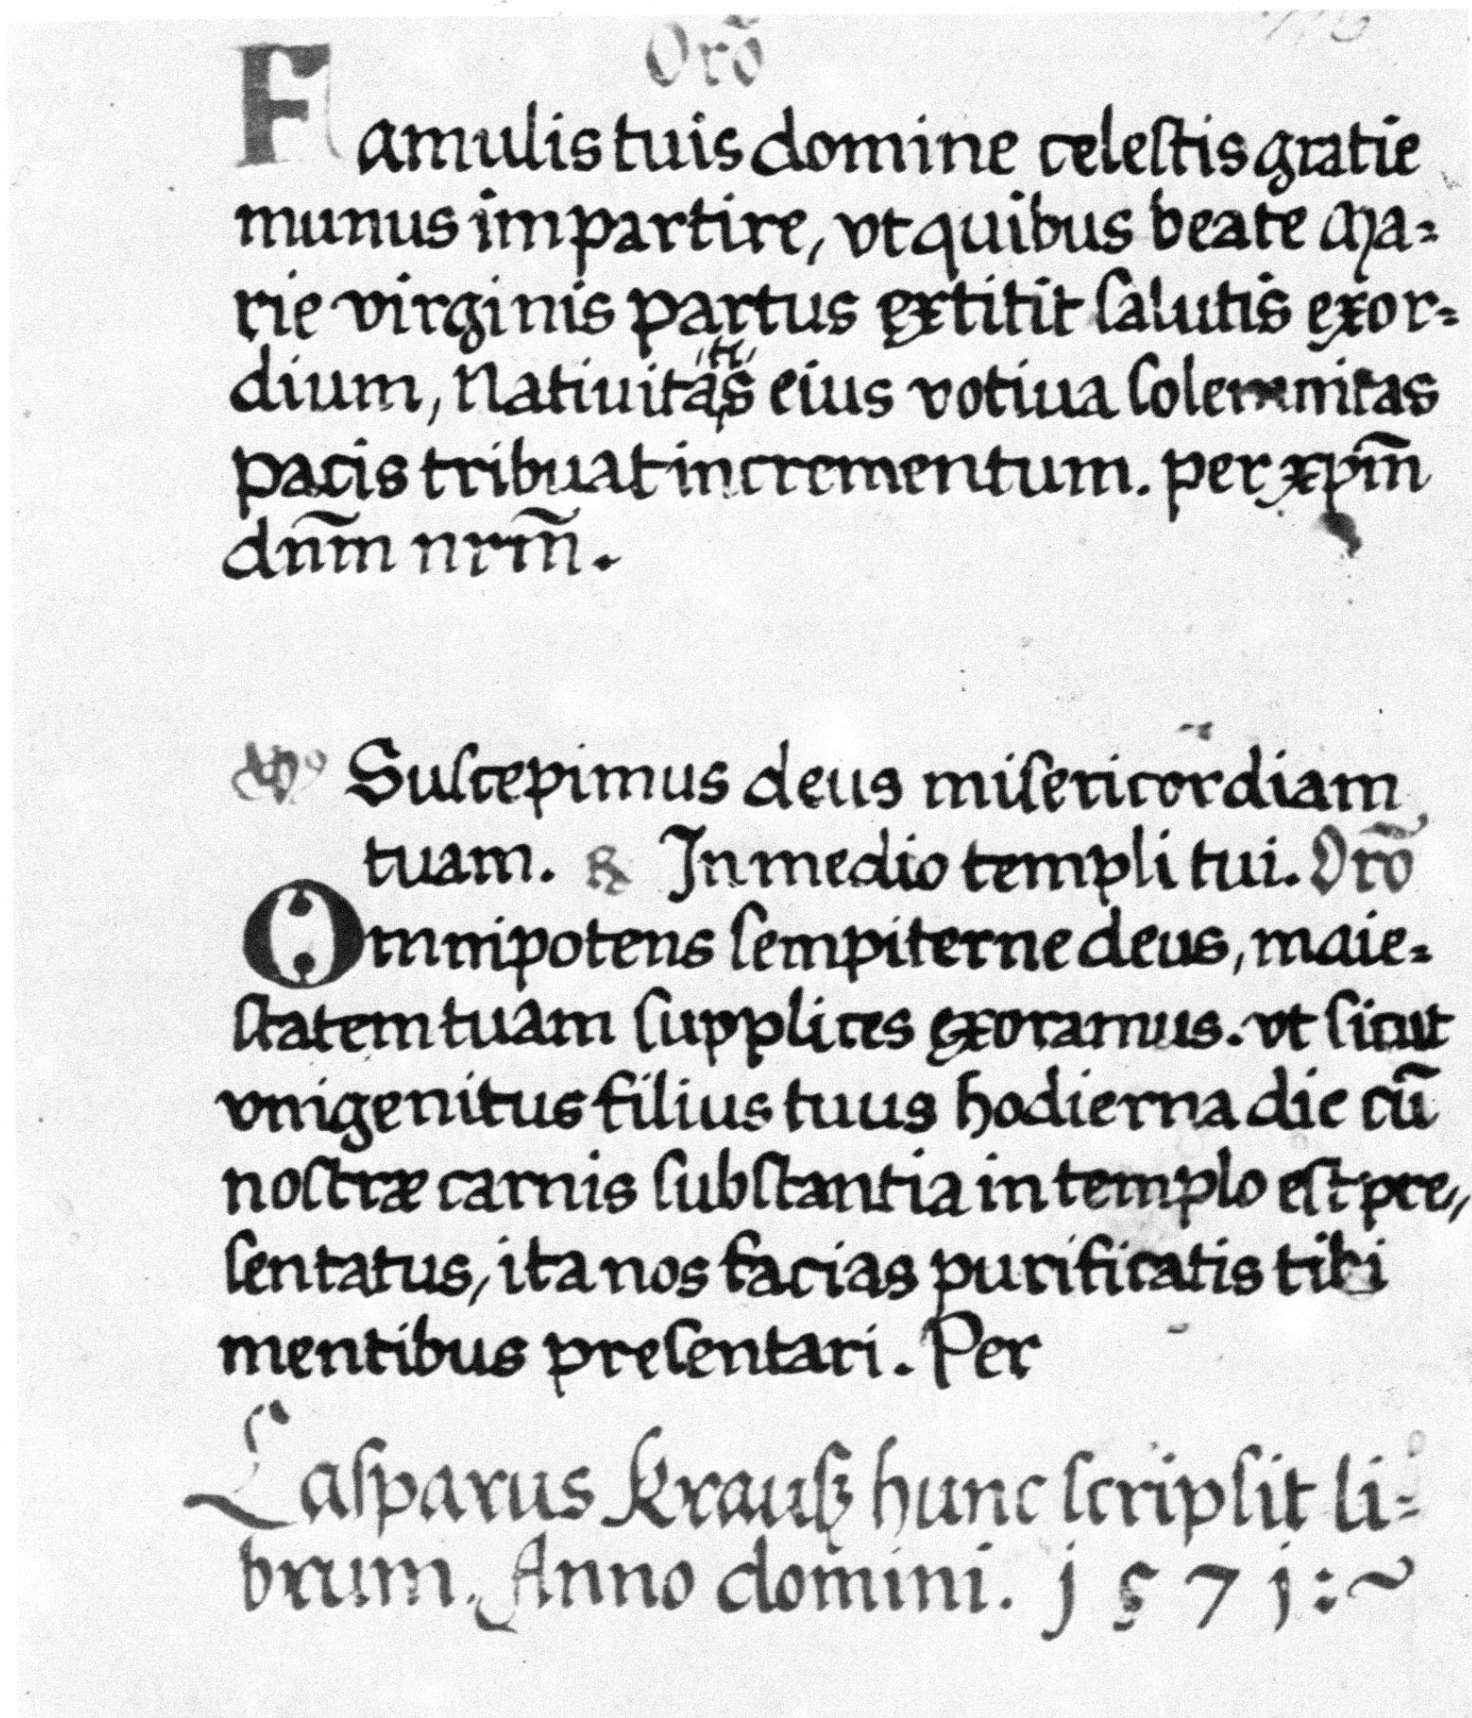 Orõ
Famulis tuis domine celestis gratie
munus impartire, vt quibus beate Ma=
rie virginis partus extitit salutis exor=
dium, Natiuitatis eius votiua solemnitas
pacis tribuat incrementum. per xpm̃
dnm̃ nrm̃.
Suscepimus deus misericordiam
tuam. ℟ In medio templi tui. Orõ
Omnipotens sempiterne deus, maie=
statem tuam supplices exoramus. vt sicut
vnigenitus filius tuus hodierna die cũ
nostræ carnis substantia in templo est pre,
sentatus, ita nos facias purificatis tibi
mentibus presentari. Per
Casparus Krauß hunc scripsit li=
brum. Anno domini. 1571:~